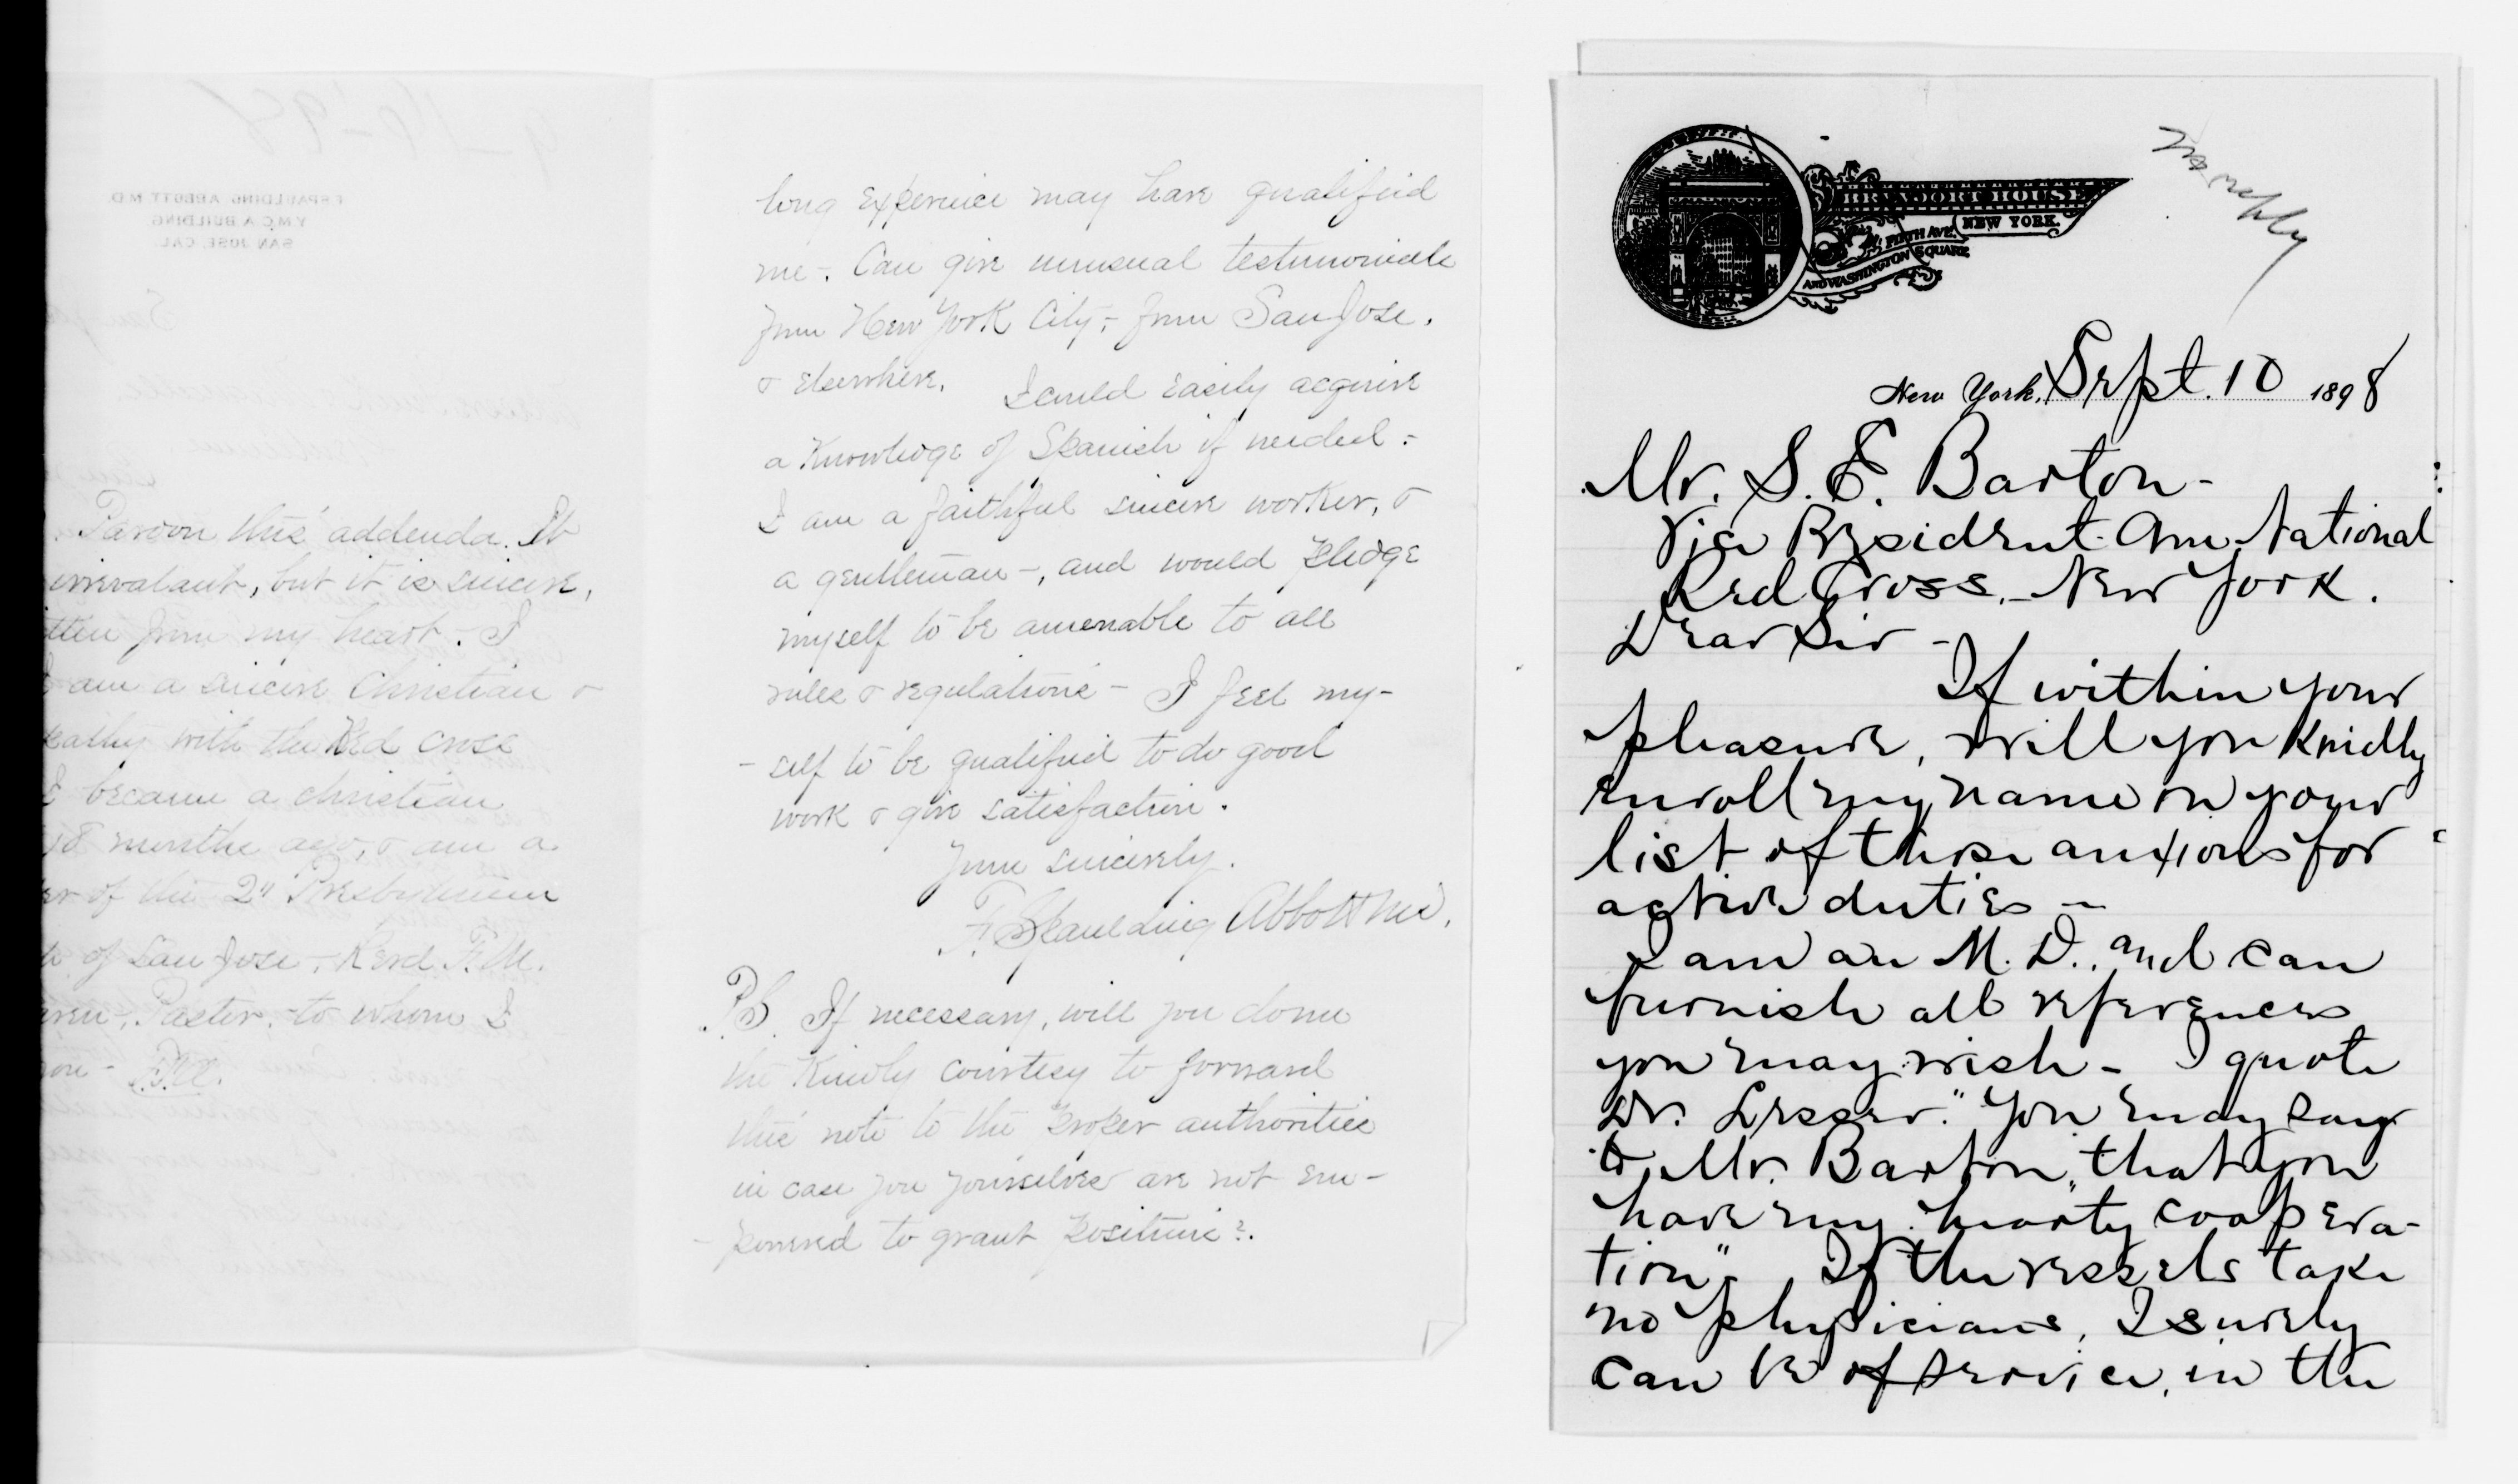 Pardon this addenda. It
irrevalant, but it is sincere,
from my heart. I
I am a sincere Christian &
with the Red Cross
I became a christian
months ago, & am a
of the 2" Presbyterian
of San Jose, Revd F.M.
Pastor, - to whom I
F.S.A.
F SPAULDING ABBOTT M D
Y M C A BUILDING
SAN JOSE, CAL.
long experience may have qualified
me -. Can give unusual testimonials
from New York City, - from San Jose,
& elsewhere. I could easily acquire
a knowledge of Spanish if needed -
I am a faithful sincere worker, &
a gentleman -, and would pledge
myself to be amenable to all
rules & regulations - I feel my-
- self to be qualified to do good
work & give satisfaction.
Yours sincerely.
F. Spaulding Abbott MD.
P.S. If necessary, will you do me
the kindly courtesy to forward
this note to the proper authorities
in case you yourselves are not em-
- powered to grant positions?.
BREVOORT HOUSE
NEW YORK.
FIFTH AVE.
AND WASHINGTON SQUARE
New York, Sept. 10 1898
Mr. S. E. Barton -
Vice President Am. National
Red Cross, - New York.
Dear Sir -
If within your
pleasure, will you kindly
enroll my name on your
list of those anxious for
active duties -
I am an M. D., and can
furnish all references
you may wish - I quote
Dr. Lesser. "You may say
to Mr. Barton, that you
have my hearty coopera-
tion". If the vessels take
no physicians, I surely
can be of service, in the